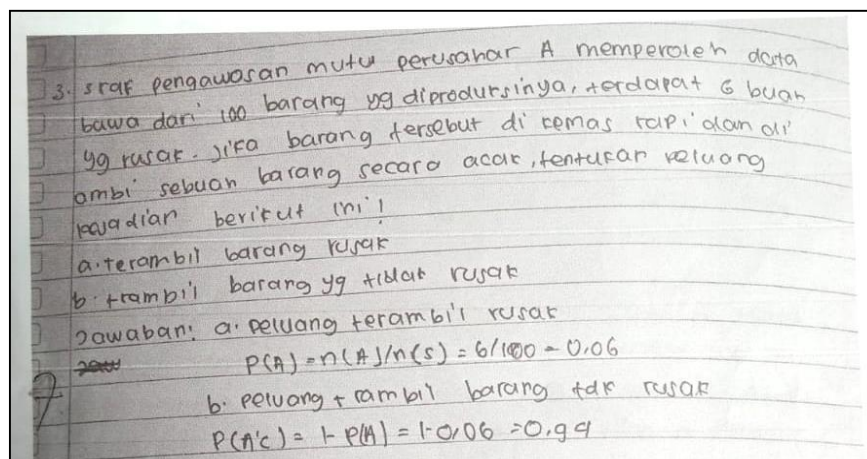 3. staf pengawasan mutu perusahar A memperoleh data
bawa dari 100 barang yg diprodursinya, terdapat 6 buah
yg rusak. Jika barang tersebut di kemas rapi dan di
ambi sebuah barang secara acak, tentukan peluang
kejadian berikut ini!
a. terambil barang rusak
b. trambil barang yg tidak rusak
Jawaban: a. peluang terambil rusak
P(A) = n(A)/n(s) = 6/100 = 0.06
b. peluang trambil barang tdk rusak
P(A'c) = 1- P(A) = 1-0,06 = 0.94